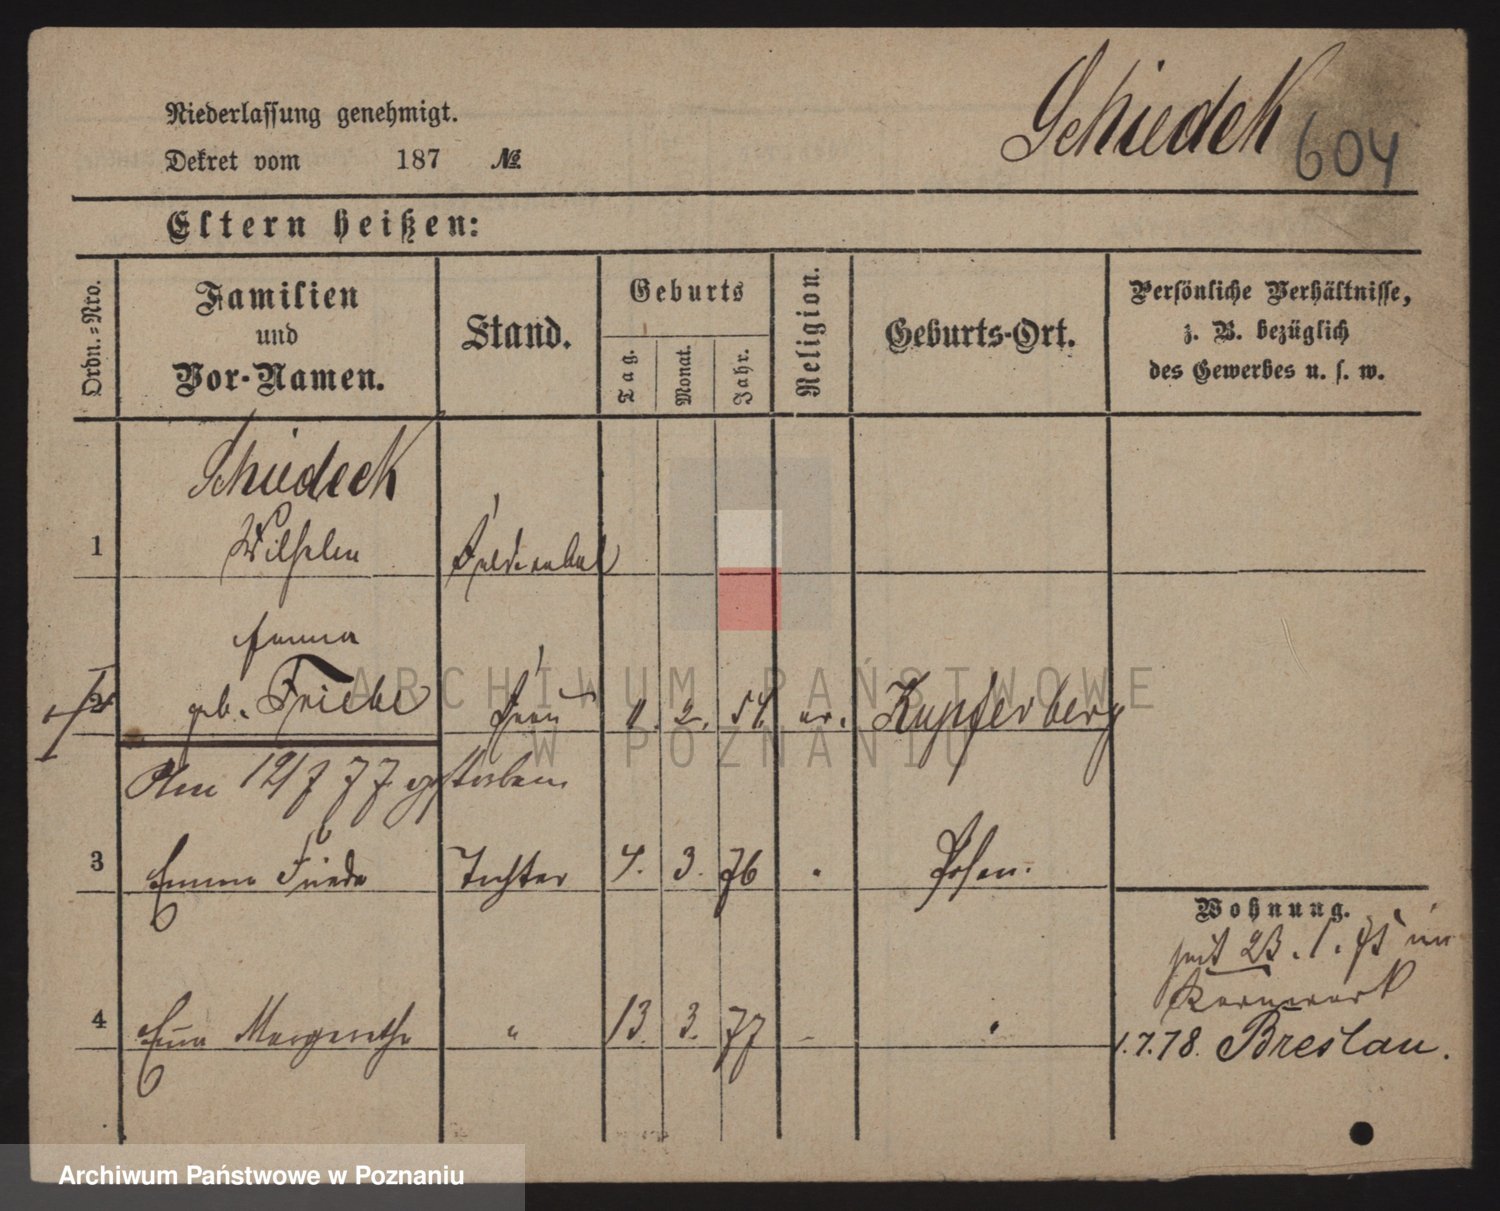 Schiedek 604
Niederlassung genehmigt.
Dekret vom 187 №
Eltern heißen:
Ordn.-Nro.
Familien und Vor-Namen.
Stand.
Geburts
Tag.
Monat.
Jahr.
Religion.
Geburts-Ort.
Persönliche Verhältnisse,
z. B. bezüglich
des Gewerbes u. s. w.
Schiedeck
1 Wilhelm
Emma
2 geb. Friebe Frau 2. 54 ev. Kupferberg
Am 12/7 77 gestorben
3 Emma Tochter 4. 3. 76 Posen.
Wohnung.
seit 23. 1. 75 im
Kernwerk
4 Margarethe " 13. 3. 77
1.7.78. Breslau.
ARCHIWUM PAŃSTWOWE
W POZNANIU
Archiwum Państwowe w Poznaniu